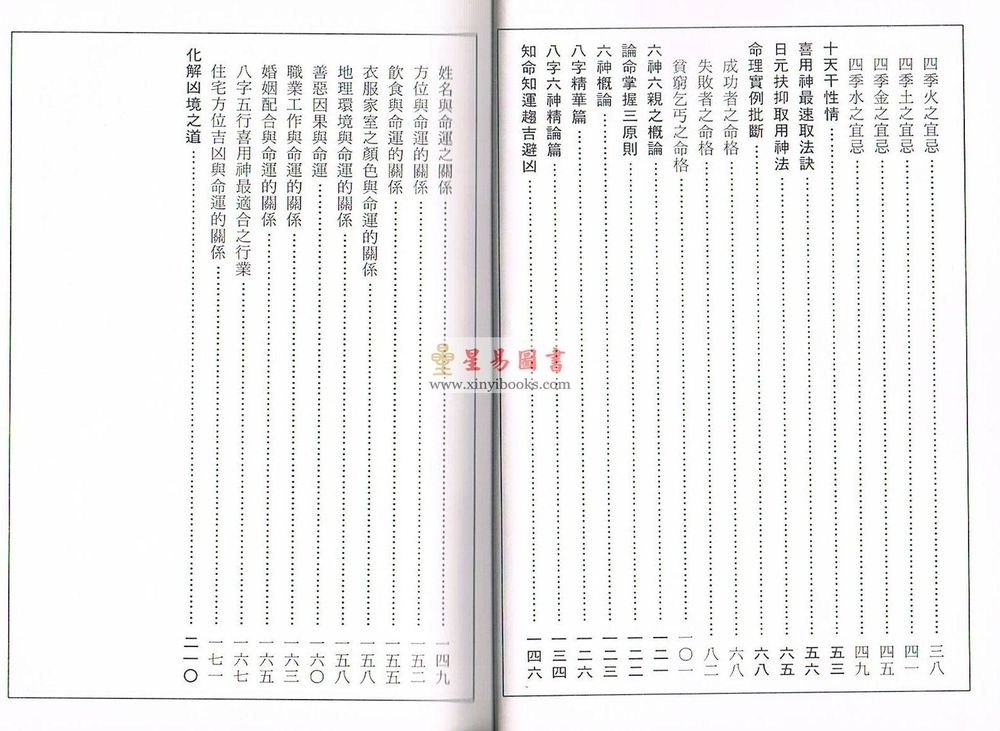 四季火之宜忌……三八
四季土之宜忌……四一
四季金之宜忌……四五
四季水之宜忌……四九
十天干性情……五三
喜用神最速取法訣……五六
日元扶抑取用神法……六五
命理實例批斷……六八
成功者之命格……六八
失敗者之命格……八二
貧窮乞丐之命格……一〇一
六神六親之概論……一二一
論命掌握三原則……一二二
六神概論……一二三
八字精華篇……一二六
八字六神精論篇……一三四
知命知運趨吉避凶……一四六
姓名與命運之關係……一四九
方位與命運的關係……一五二
飲食與命運的關係……一五五
衣服家室之顏色與命運的關係……一五八
地理環境與命運的關係……一五八
善惡因果與命運……一六〇
職業工作與命運的關係……一六三
婚姻配合與命運的關係……一六五
八字五行喜用神最適合之行業……一六七
住宅方位吉凶與命運的關係……一七一
化解凶境之道……二一〇
星易圖書
www.xinyibooks.com